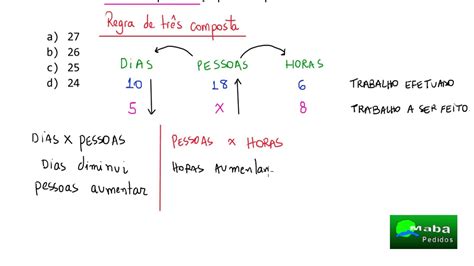 Regra de três composta
a) 27
b) 26
c) 25
d) 24
DIAS PESSOAS HORAS
10 18 6 TRABALHO EFETUADO
5 x 8 TRABALHO A SER FEITO
DIAS X PESSOAS
PESSOAS X HORAS
Dias diminui
pessoas aumentar
HORAS AUMENTAR
Maba
Pedidos